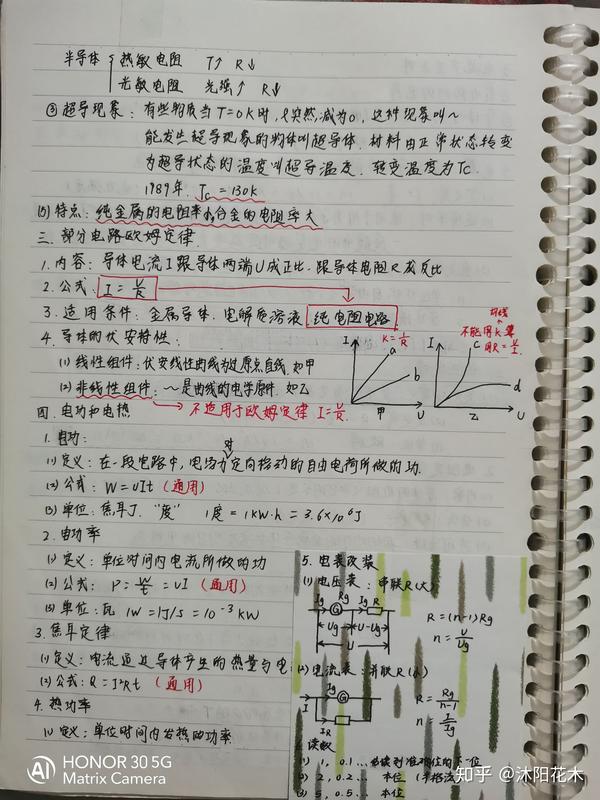 半导体 { 热敏电阻 T↑ R↓
光敏电阻 光强↑ R↓
③ 超导现象: 有些物质当T=0K时, ρ突然减为0, 这种现象叫~
能发生超导现象的物体叫超导体. 材料由正常状态转变
为超导状态的温度叫超导温度. 转变温度为Tc.
1989年. Tc=130K
(5) 特点: 纯金属的电阻率 合金的电阻率大
三. 部分电路欧姆定律.
1. 内容: 导体电流I跟导体两端U成正比. 跟导体电阻R成反比
2. 公式: I=U/R
3. 适用条件: 金属导体. 电解质溶液 纯电阻电路
4. 导体的伏安特性:
(1) 线性组件: 伏安线性曲线为过原点直线. 如甲
(2) 非线性组件: ~是曲线的电学原件. 如乙
→ 不适用于欧姆定律 I=U/R.
I K=1/R a b U 甲
I 不能用K算 用R=U/I. c d U 乙
四. 电功和电热
1. 电功:
(1) 定义: 在一段电路中, 电场力对定向移动的自由电荷所做的功.
(2) 公式: W=UIt (通用)
(3) 单位: 焦耳J. "度" 1度=1KW·h=3.6×10⁶J
2. 电功率
(1) 定义: 单位时间内电流所做的功
(2) 公式: P=W/t=UI (通用)
(3) 单位: 瓦 1W=1J/s=10⁻³KW
3. 焦耳定律
(1) 定义: 电流通过导体产生的热量与电
(2) 公式: Q=I²Rt (通用)
4. 热功率
(1) 定义: 单位时间内发热的功率.
5. 电表改装
(1) 电压表: 串联R(大)
Ig Rg Ig R
G
Ug U-Ug
U
R=(n-1)Rg
n=U/Ug
(2) 电流表: 并联R(小)
Ig G
I
IR
R=Rg/n-1
n=I/Ig
读数
(1) 1, 0.1...
(2) 2, 0.2... 本位
(3) 5, 0.5... 本位
HONOR 30 5G
Matrix Camera
知乎 @沐阳花木